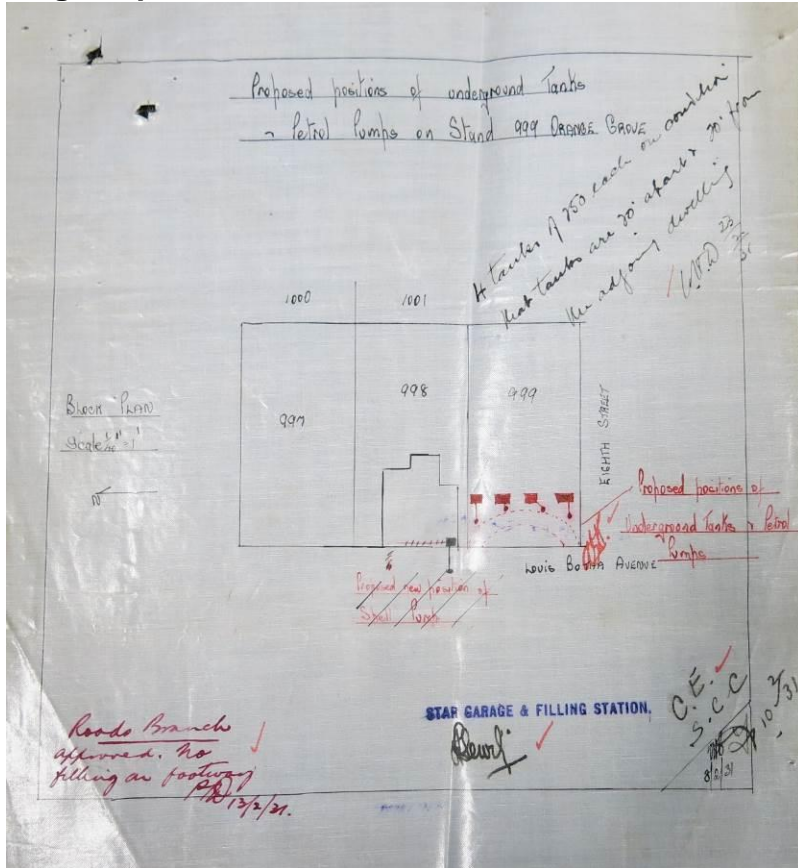 Proposed positions of underground Tanks
Petrol Pumps on Stand 999 ORANGE GROVE
4 tanks of 750 each on condition
that tanks are 20' apart & 20' from
the adjoining dwelling
1000
1001
997
998
999
EIGHTH STREET
BLOCK PLAN
Scale
Proposed positions of
Underground Tanks & Petrol
Pumps
LOUIS BOTHA AVENUE
Proposed new position of
Shell Pump
STAR GARAGE & FILLING STATION.
C.E.
S.C.C
Roads Branch
approved. No
filling on footway
13/2/31.